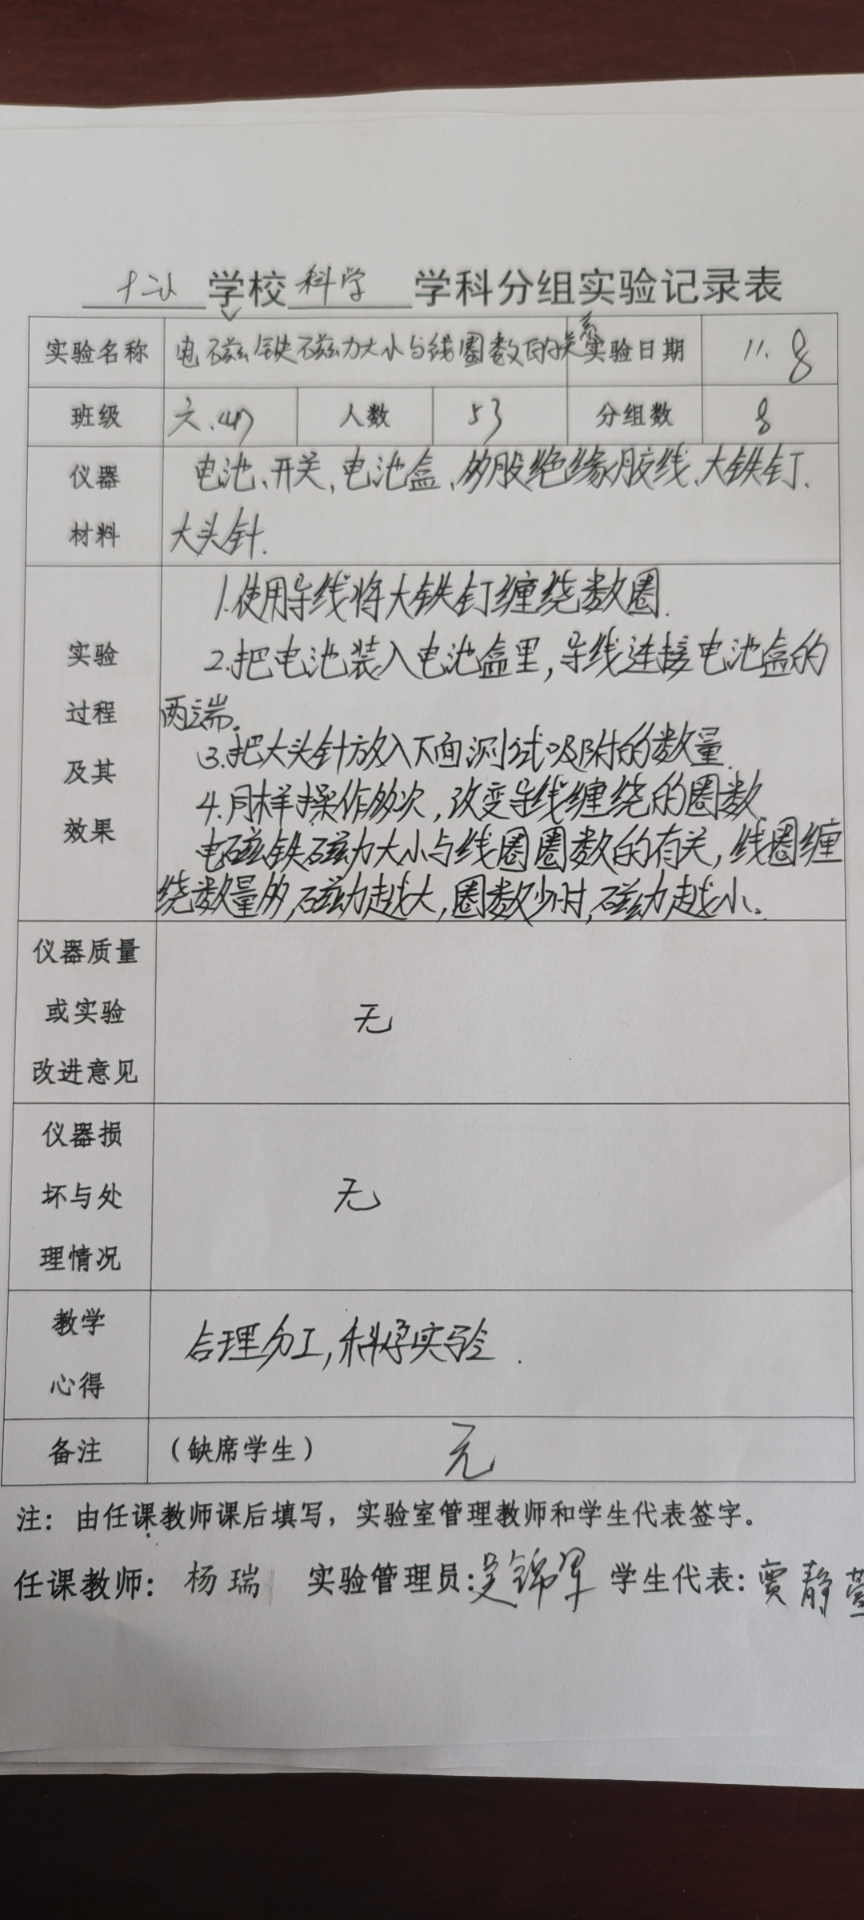 十二小学校科学学科分组实验记录表
实验名称 电磁铁磁力大小与线圈数的关系 实验日期 11.8
班级 六.(4) 人数 53 分组数 8
仪器 电池、开关、电池盒、多股绝缘胶线、大铁钉、
材料 大头针.
1.使用导线将大铁钉缠绕数圈.
实验 2.把电池装入电池盒里,导线连接电池盒的
过程 两端。
3.把大头针放入下面测试吸附的数量.
及其 4.同样操作多次,改变导线缠绕的圈数
效果 电磁铁磁力大小与线圈圈数的有关,线圈缠
绕数量多,磁力越大,圈数少时,磁力越小。
仪器质量
或实验 无
改进意见
仪器损
坏与处 无
理情况
教学 合理分工,科学实验.
心得
备注 (缺席学生) 无
注:由任课教师课后填写,实验室管理教师和学生代表签字。
任课教师:杨瑞 实验管理员:吴锦军 学生代表:贾静萱